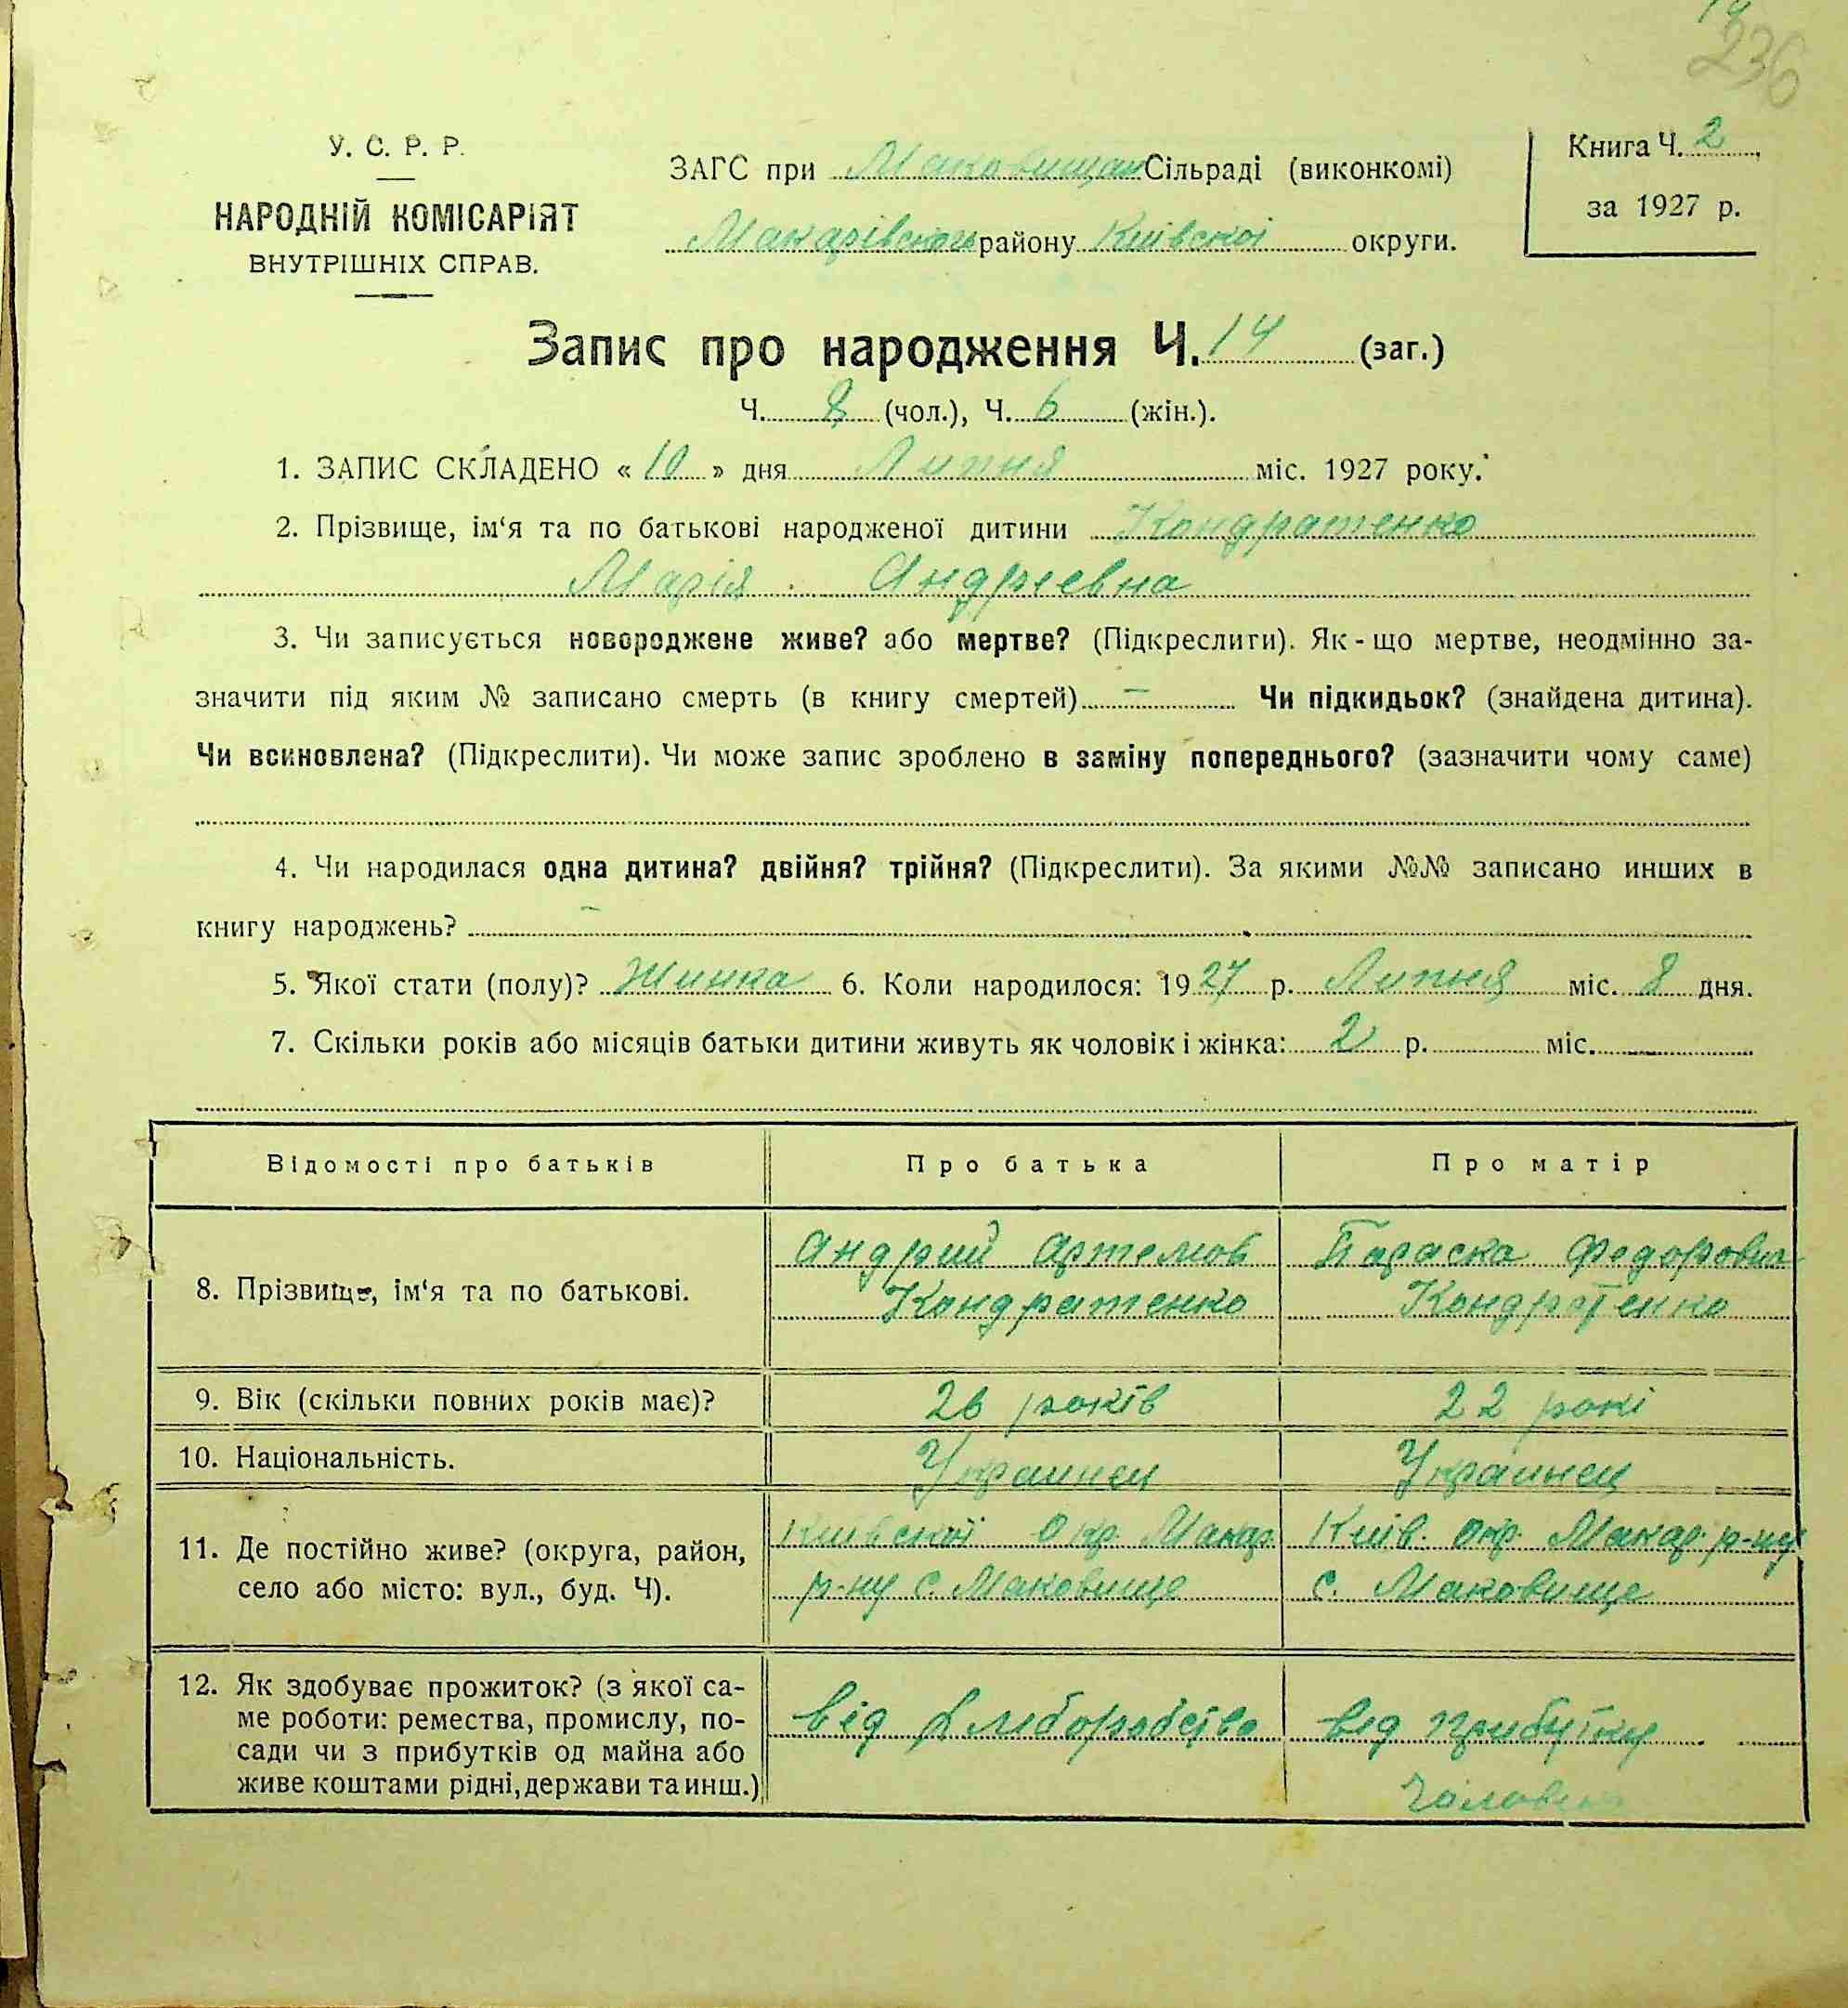 14
236
У. С. Р. Р.
НАРОДНІЙ КОМІСАРІЯТ
ВНУТРІШНІХ СПРАВ.
ЗАГС при Маковищан Сільраді (виконкомі)
Макарівськ району Київскої округи.
Книга Ч. 2
за 1927 р.
Запис про народження Ч. 14 (заг.)
Ч. 8 (чол.), Ч. 6 (жін.).
1. ЗАПИС СКЛАДЕНО « 10 » дня Липня міс. 1927 року.
2. Прізвище, ім‘я та по батькові народженої дитини Кондратенко
Марія Андриевна
3. Чи записується новороджене живе? або мертве? (Підкреслити). Як-що мертве, неодмінно за-
значити під яким № записано смерть (в книгу смертей) — Чи підкидьок? (знайдена дитина).
Чи всиновлена? (Підкреслити). Чи може запис зроблено в заміну попереднього? (зазначити чому саме)
4. Чи народилася одна дитина? двійня? трійня? (Підкреслити). За якими №№ записано инших в
книгу народжень? —
5. Якої стати (полу)? Жинка 6. Коли народилося: 1927 р. Липня міс. 8 дня.
7. Скільки років або місяців батьки дитини живуть як чоловік і жінка: 2 р. міс.
Відомості про батьків Про батька Про матір
8. Прізвище, ім‘я та по батькові.
Андрий Артемов
Кондратенко
Параска Федорович
Кондратенко
9. Вік (скільки повних років має)? 26 років 22 рокі
10. Національність. Украинец Украинец
11. Де постійно живе? (округа, район,
село або місто: вул., буд. Ч).
Київскої Окр. Макар.
р-ну с. Маковище
Київ. Окр. Макар. р-ну
с. Маковище
12. Як здобуває прожиток? (з якої са-
ме роботи: ремества, промислу, по-
сади чи з прибутків од майна або
живе коштами рідні, держави та инш.)
від хлиборобства
від прибутку